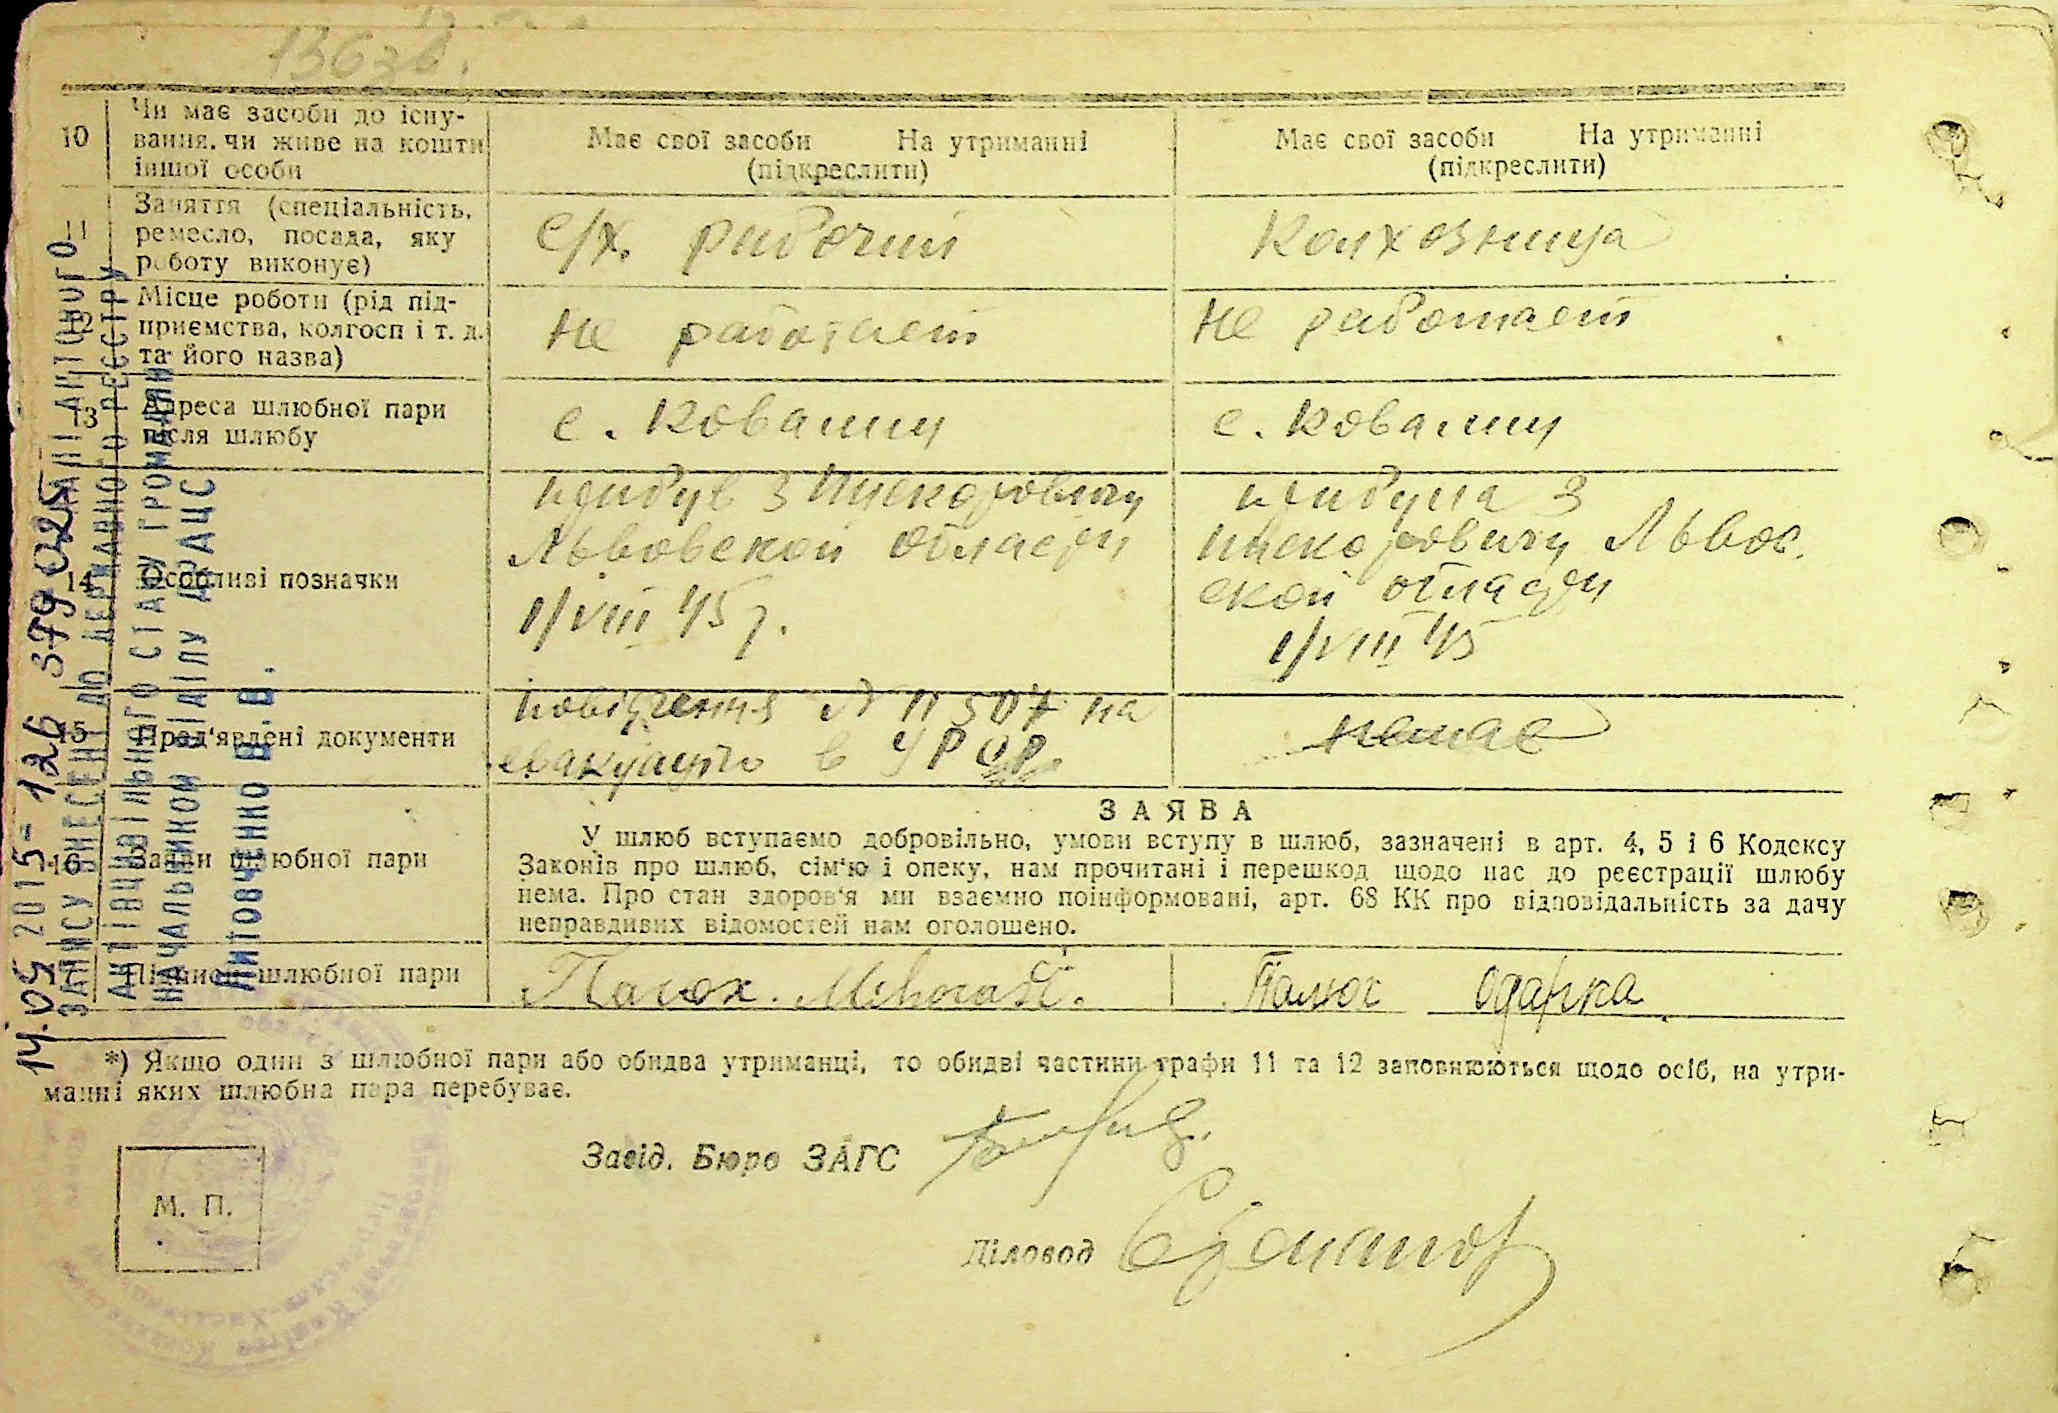 10
Чи має засоби до існу-
вання, чи живе на кошти
іншої особи
Має свої засоби На утриманні
(підкреслити)
Має свої засоби На утриманні
(підкреслити)
11
Заняття (спеціальність,
ремесло, посада, яку
роботу виконує)
с/х. рабочий
Колхозница
12
Місце роботи (рід під-
приємства, колгосп і т. д.
та його назва)
не работает
не работает
13
Адреса шлюбної пари
після шлюбу
с. Ковалин
с. Ковалин
14
Особливі позначки
прибув з
Львовской области
1/VIII 45 г.
прибула з
Львов.
ской области
1/VIII 45
15
Пред'явлені документи
посвідчення № 11507 на
евакуацію в УРСР
немає
16
Заяви шлюбної пари
ЗАЯВА
У шлюб вступаємо добровільно, умови вступу в шлюб, зазначені в арт. 4, 5 і 6 Кодексу
Законів про шлюб, сім'ю і опеку, нам прочитані і перешкод щодо нас до реєстрації шлюбу
нема. Про стан здоров'я ми взаємно поінформовані, арт. 68 КК про відповідальність за дачу
неправдивих відомостей нам оголошено.
17
Підписи шлюбної пари
Одарка
*) Якщо один з шлюбної пари або обидва утриманці, то обидві частини графи 11 та 12 заповнюються щодо осіб, на утри-
манні яких шлюбна пара перебуває.
Завід. Бюро ЗАГС
М. П.
Діловод
14.09 2015-126 379025
ЗАПИСУ ВНЕСЕНІ ДО ДЕРЖАВНОГО РЕЄСТРУ
АКТІВ ЦИВІЛЬНОГО СТАНУ ГРОМАДЯН
НАЧАЛЬНИКОМ ВІДДІЛУ ДРАЦС
Литовченко В.В.